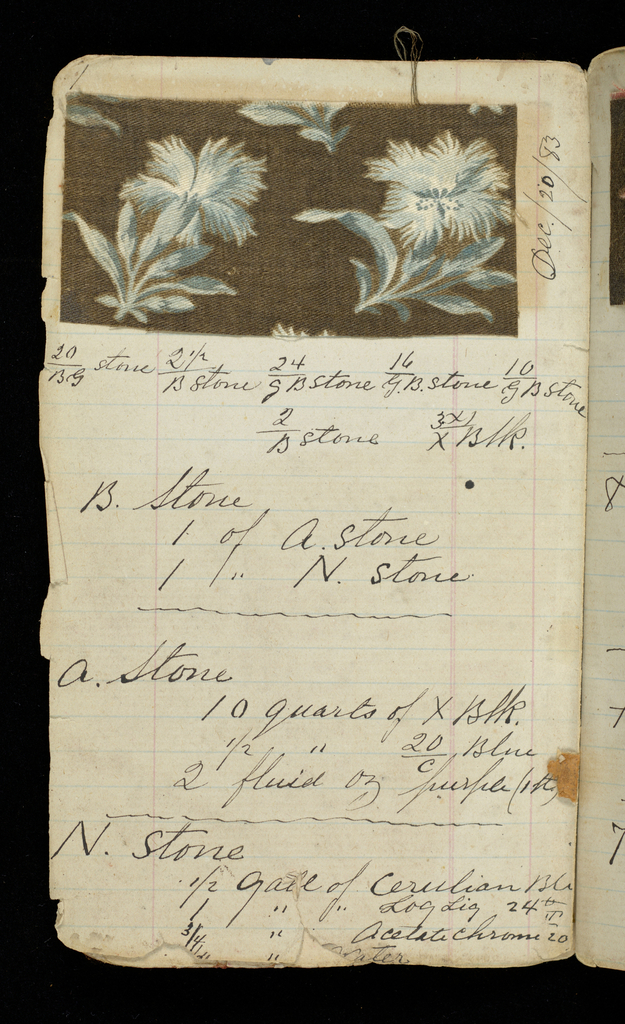 Dec./20/83
20/BG stone 2 1/2/B stone 24/G B stone 16/G.B. stone 10/G B stone
2/B stone 3x/X Blk.
B. Stone
1 of A. stone
1 " N. stone
A. Stone
10 quarts of X Blk.
1/2 " 20/C Blue
2 fluid oz purple
N. Stone
1/2 gall of Cerulian
1 " " Log Liq 24
3/4 " Acetate Chrome 20